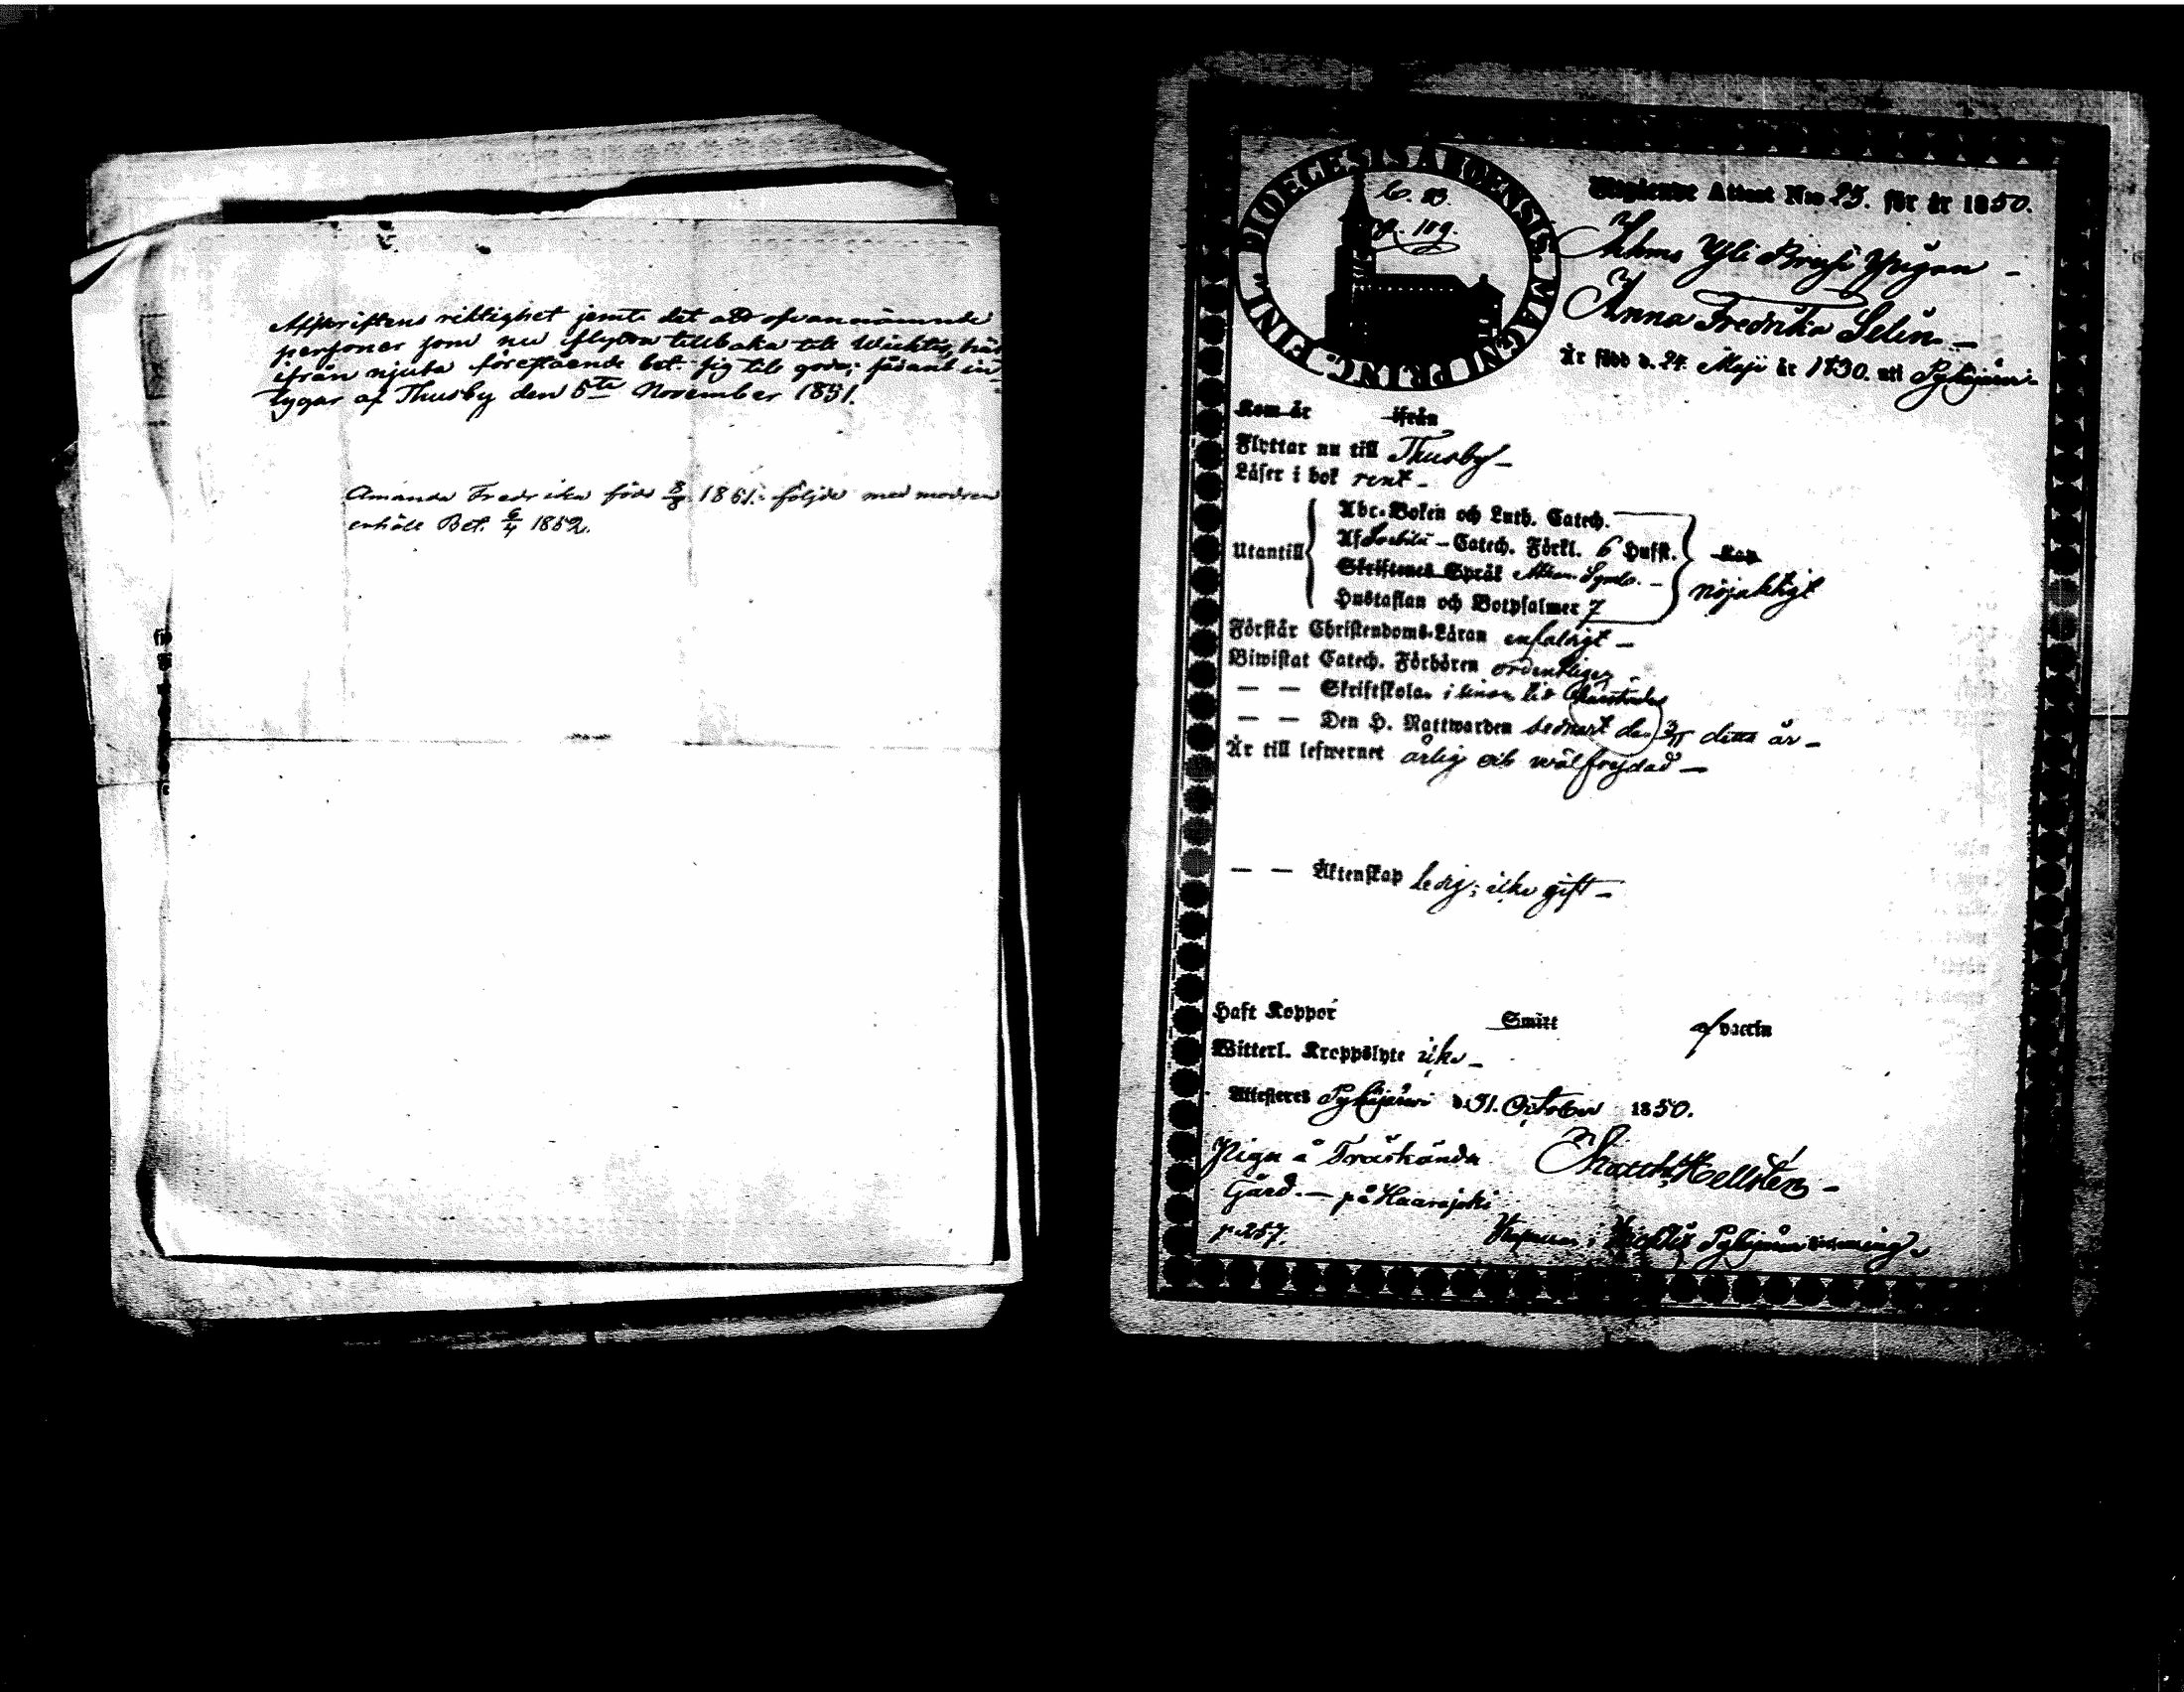 Afskriftens riktighet jemte det att ofvannämnde
personer som nu flytta tillbaka till Wichtis, här
ifrån njuta förestående bet. sig till godo; sådant in-
tygar af Thusby den 5te November 1851.
Amanda Fredrika född 8/8 1851. följde med modren
enhåll Bet. 6/4 1852.
DIOECESIS ABOENSIS. MAGNI PRINC. FINL.
p. 109.
Utgående Attest N:o 25. för år 1850.
Pigan
Anna Fredrika Selin
Är född d. 24. Maji år 1830. uti Pyhäjärvi
Kom år ifrån
Flyttar nu till Thusby
Läser i bok rent
Utantill
Abc-Boken och Luth. Catech.
Af Svebilii Catech. Förkl. 6 Hufst.
Skriftenes Språk Athan. Symb.
Hustaflan och Botpsalmer 7
nöjaktigt
Förstår Christendoms-Läran enfaldigt
Biwistat Catech. Förhören ordentligen
— — Skriftskolan i sinom tid
— — Den H. Nattwarden senast den 3/11 detta år
Är till lefwernet ärlig och wälfrejdad
— — Äktenskap ledig; icke gift
Haft Koppor Smitt af vaccin
Witterl. Kroppslyte icke
Attesteras Pyhäjärvi d. 31. October 1850.
Pigan å Träskända
Gård. — på Haarajoki
p. 257.
Hellstén
i Wichtis Pyhäjärvi